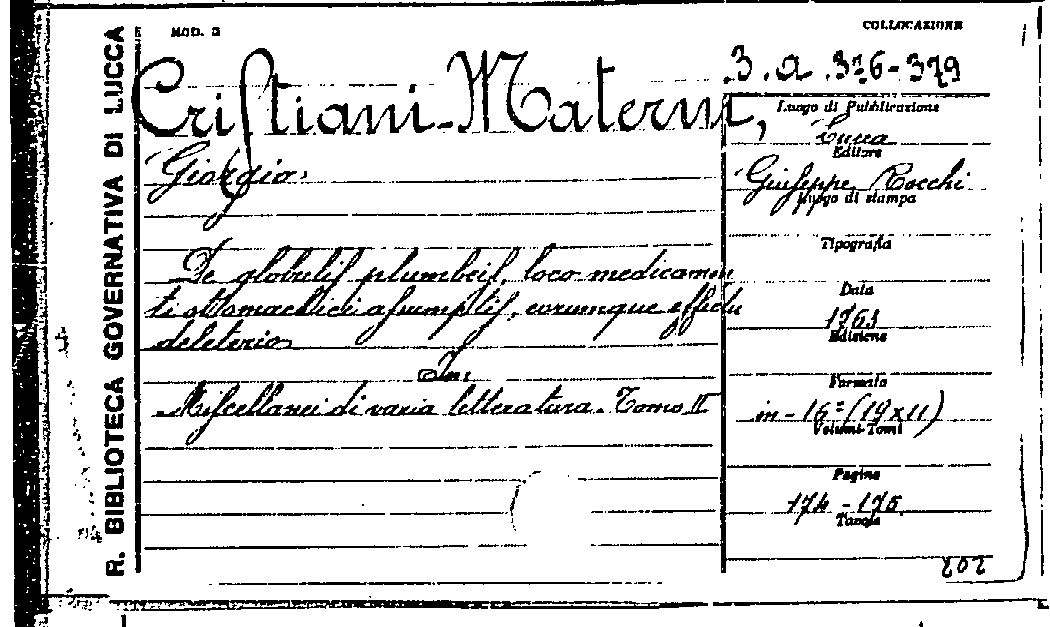 R. BIBLIOTECA GOVERNATIVA DI LUCCA
MOD. 3
COLLOCAZIONE
3.a.376-379
Cristiani-Materni,
Giorgio.
Luogo di Pubblicazione
Lucca
Editore
Giuseppe Rocchi
Luogo di stampa
Tipografia
De globulis plumbeis, loco medicamen
ti stomachici assumptis, eorumque effectu
deleterio
In:
Miscellanei di varia letteratura. Tomo II
Data
1763
Edizione
Formato
in-16º (19x11)
Volumi-Tomi
Pagine
174-175
Tavole
202